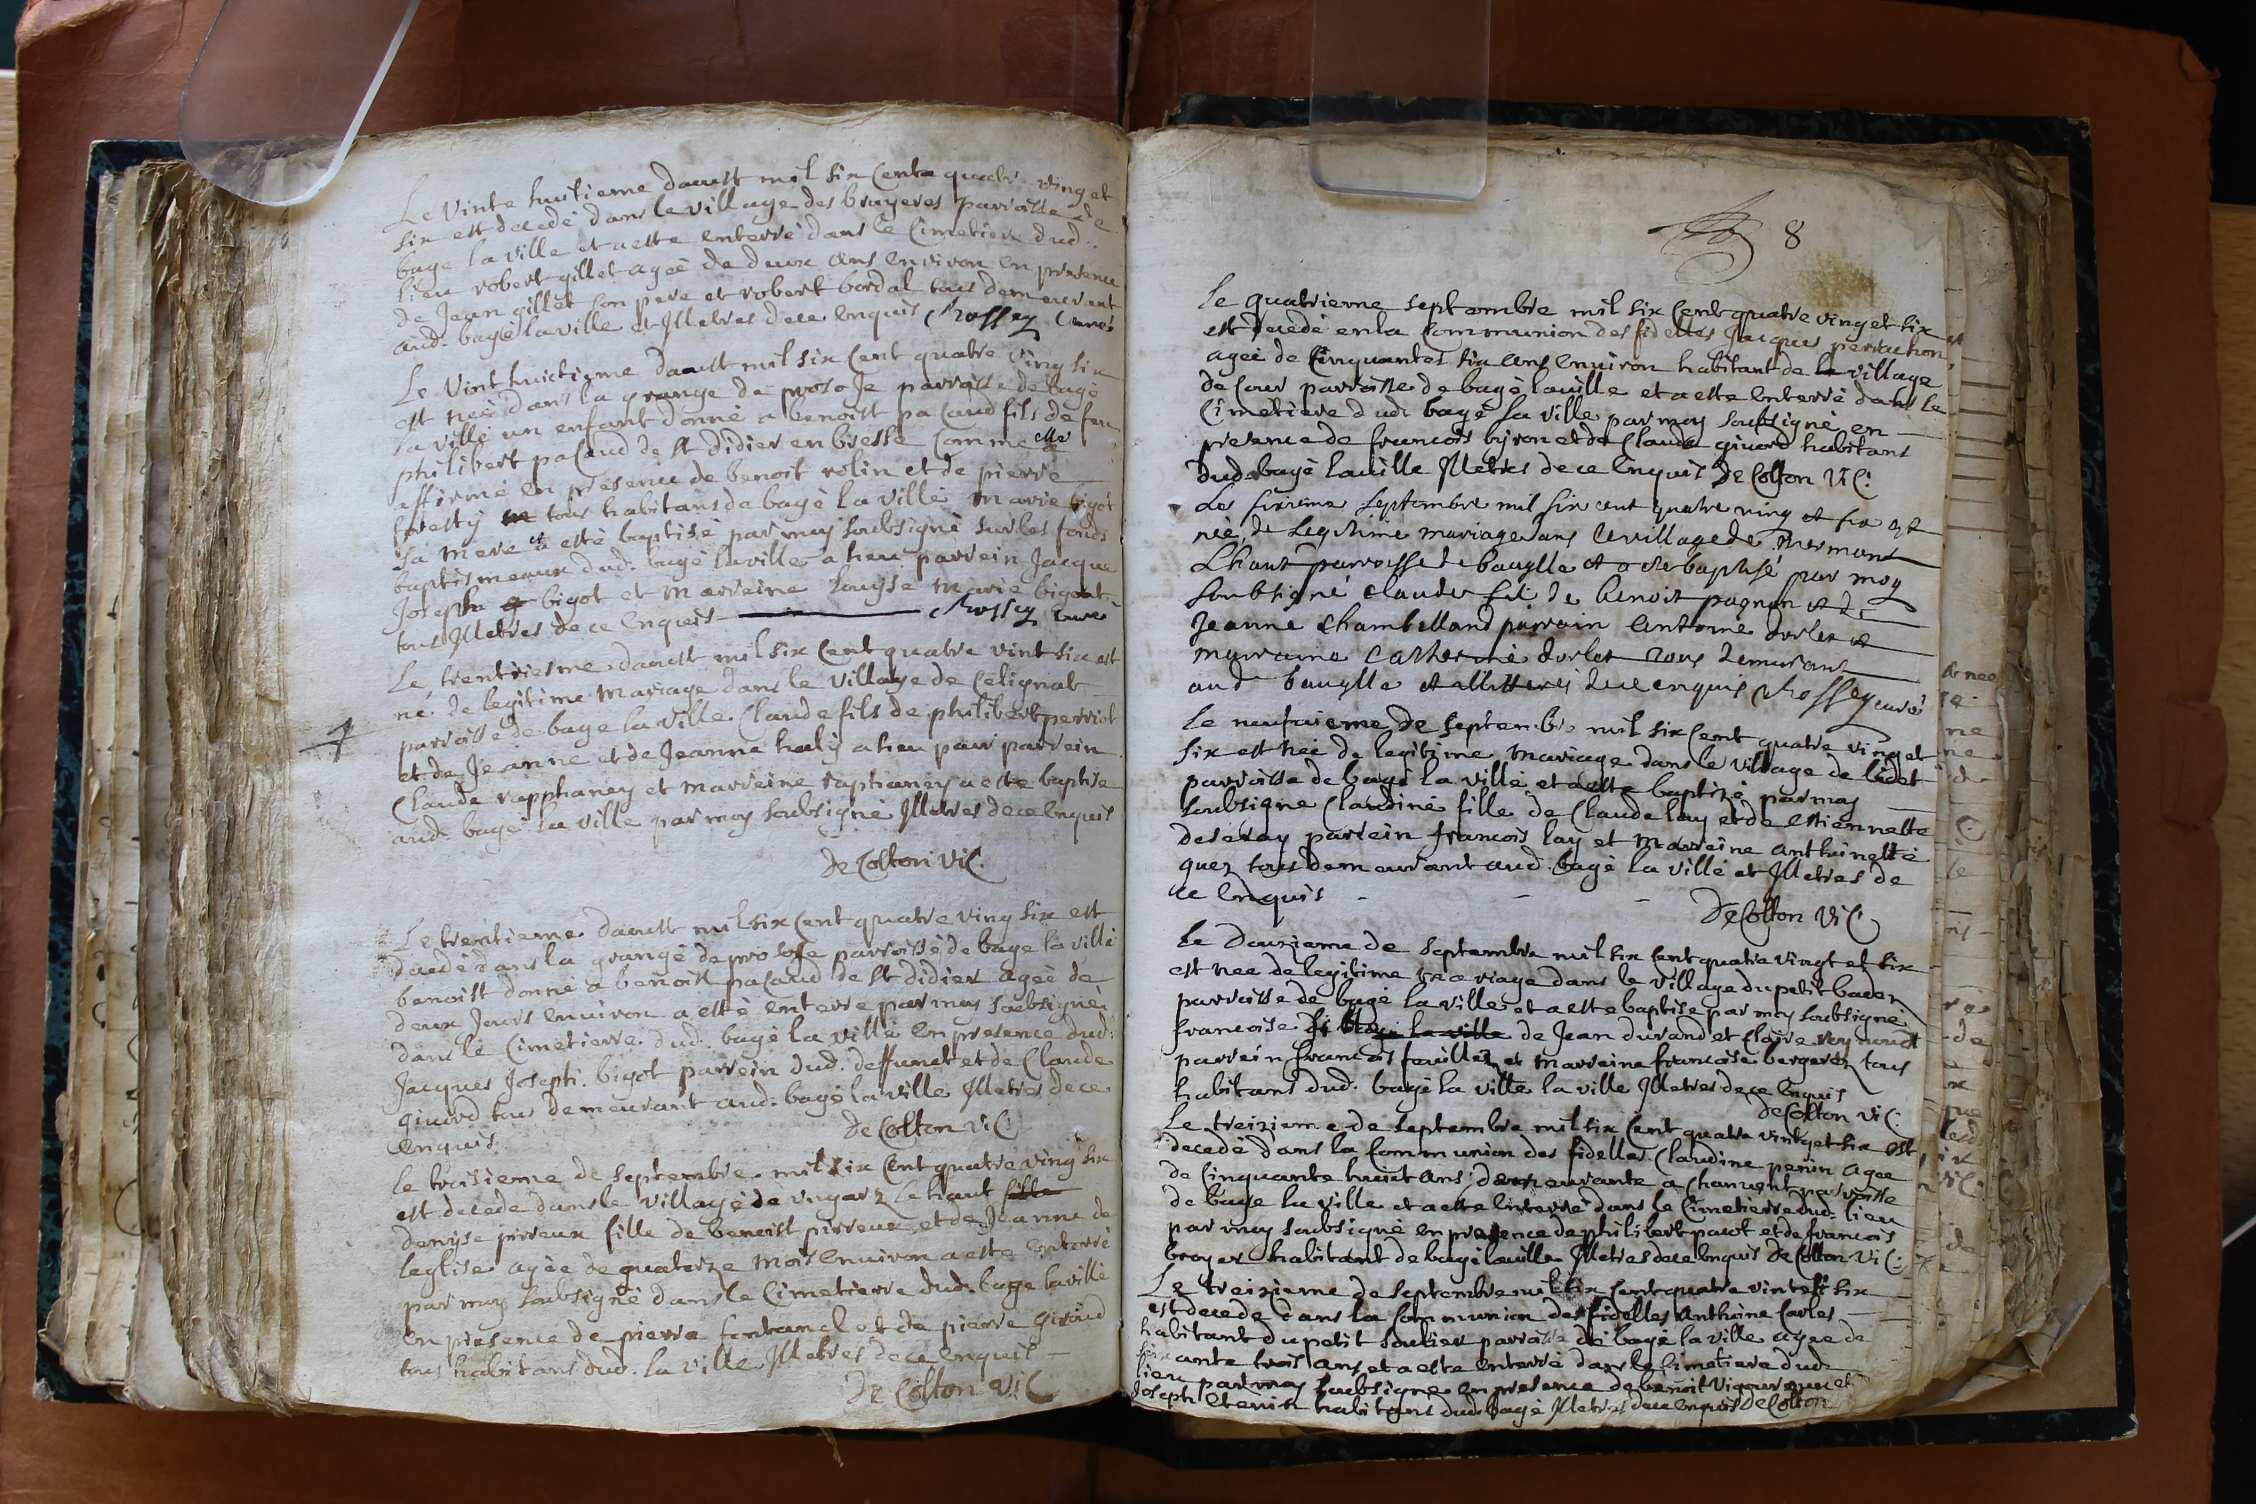 Le Vinte huitieme daoust mil six Cents quatre ving et
six est decedé dans le village des bruyeres parroisse de
bage la ville et a este enterré dans le Cimetiere dud.
lieu robert gillet ageé de deux ans environ en presence
de Jean gillet son pere et robert bordal tous demeurant
aud. bagé la ville et Illetres de ce enquis Chossey Curé
Le Vint huictieme daoust mil six Cent quatre ving six
est neé dans la grange de parroisse de bagé
la ville un enfant donné a benoist pacaud fils de feu
philibert pacaud de St didier en bresse comme elle
affirmé en presence de benoit rolin et de pierre
foresty tous habitans de bagé la ville marie bigot
sa mere et a esté baptisé par moy soubsigné sur les fonds
baptismeaux dud. bagé la ville a heu parrein Jacque
Joseph bigot et marreine Louyse marie bigot
tous Illetres de ce enquis Chossey Curé
Le trentiesme daoust mil six Cent quatre vint six est
né de legitime mariage dans le village de Celignat
parroisse de bage la ville Claude fils de philibert perriot
et de Jeanne et de Jeanne haly a heu pour parrein
Claude rapphaney et marreine raphaney a este baptise
aud. bagé la ville par moy soubsigné Illetres de ce enquis
De Colton ViC.
Le trentieme daoust mil six Cent quatre ving six est
dans la grange de parroisse de bage la ville
benoist donné a benoist pacaud de St didier ageé de
deux Jours environ a esté enterré par moy soubsigné
dans le Cimetierre dud. bagé la ville en presence dud.
Jacques Joseph bigot parrein dud. deffunct et de Claude
giuord tous demeurant aud. bagé la ville Illetres de ce
enquis.
De Colton ViC
le troisieme de septembre mil six Cent quatre ving six
est decede dans le village de le haut fille
denyse pirreux fille de benoist pirreux et de Jeanne de
leglise agée de quatorze mois environ a este enterré
par moy soubsigné dans le Cimetierre dud. bage la ville
en presence de pierre et de pierre giroud
tous habitans dud. la ville Illetres de ce enquis
De Colton ViC
8
le quatrieme septembre mil six Cent quatre ving et six
est decedé en la Communion des fidelles Jacques perrachon
ageé de Cinquantes six ans environ habitant de le village
de Cour parroisse de bagé la ville et a este enterré dans le
Cimetiere dud. bagé la ville par moy soubsigné en
presence de francois byron et de Claude giuord habitans
dud. bagé la ville Illetres de ce enquis De Colton ViC.
Le sixieme septembre mil six cent quatre ving et six est
né de legitime mariage dans le village de
Lhaut parroisse de baugille et a este baptisé par moy
soubsigné Claude fils de benoit pagnon et de
Jeanne Chambelland parrain Antoine dorlet et
marraine Catherine dorlet tous demurant
aud. baugille et Illiteres de ce enquis Chossey curé
le neufuieme de septembre mil six Cent quatre ving et
six est neé de legitime mariage dans le village de
parroisse de bagé la ville et a este baptizé par moy
soubsigne Claudine fille de Claude lay et de estiennette
deseray parrein francois lay et marreine anthoinette
quez tous demeurant aud. bagé la ville et Illetres de
ce enquis
De Colton ViC
Le douzieme de septembre mil six Cent quatre vingt et six
est nee de legitime mariage dans le village du petit bader
parroisse de bagé la ville et a este baptisé par moy soubsigné
francoise la ville de Jean durand et Claire reynoud
parrein francois et marreine francoise bergeret tous
habitans dud. bagé la ville la ville Illetres de ce enquis
De Colton ViC.
Le treizieme de septembre mil six Cent quatre vint et six est
decedé dans la Communion des fidelles Claudine perin agee
de Cinquante huict ans demeurante a parroisse
de bage la ville et a este enterré dans le Cimetierre dud. lieu
par moy soubsigné en presence de philibert pacot et de francois
broyer habitant de bagé la ville Illetres de ce enquis De Colton ViC.
Le treizieme de septembre mil six Cent quatre vint et six
est decede dans la Communion des fidelles Anthoine Carles
habitant du petit parroisse de bagé la ville agee de
ante trois ans et a este enterré dans le Cimetiere dud.
lieu par moy soubsigne en presence de benoit vigoureux et
Joseph habitans dud. bagé Illetres de ce enquis De Colton